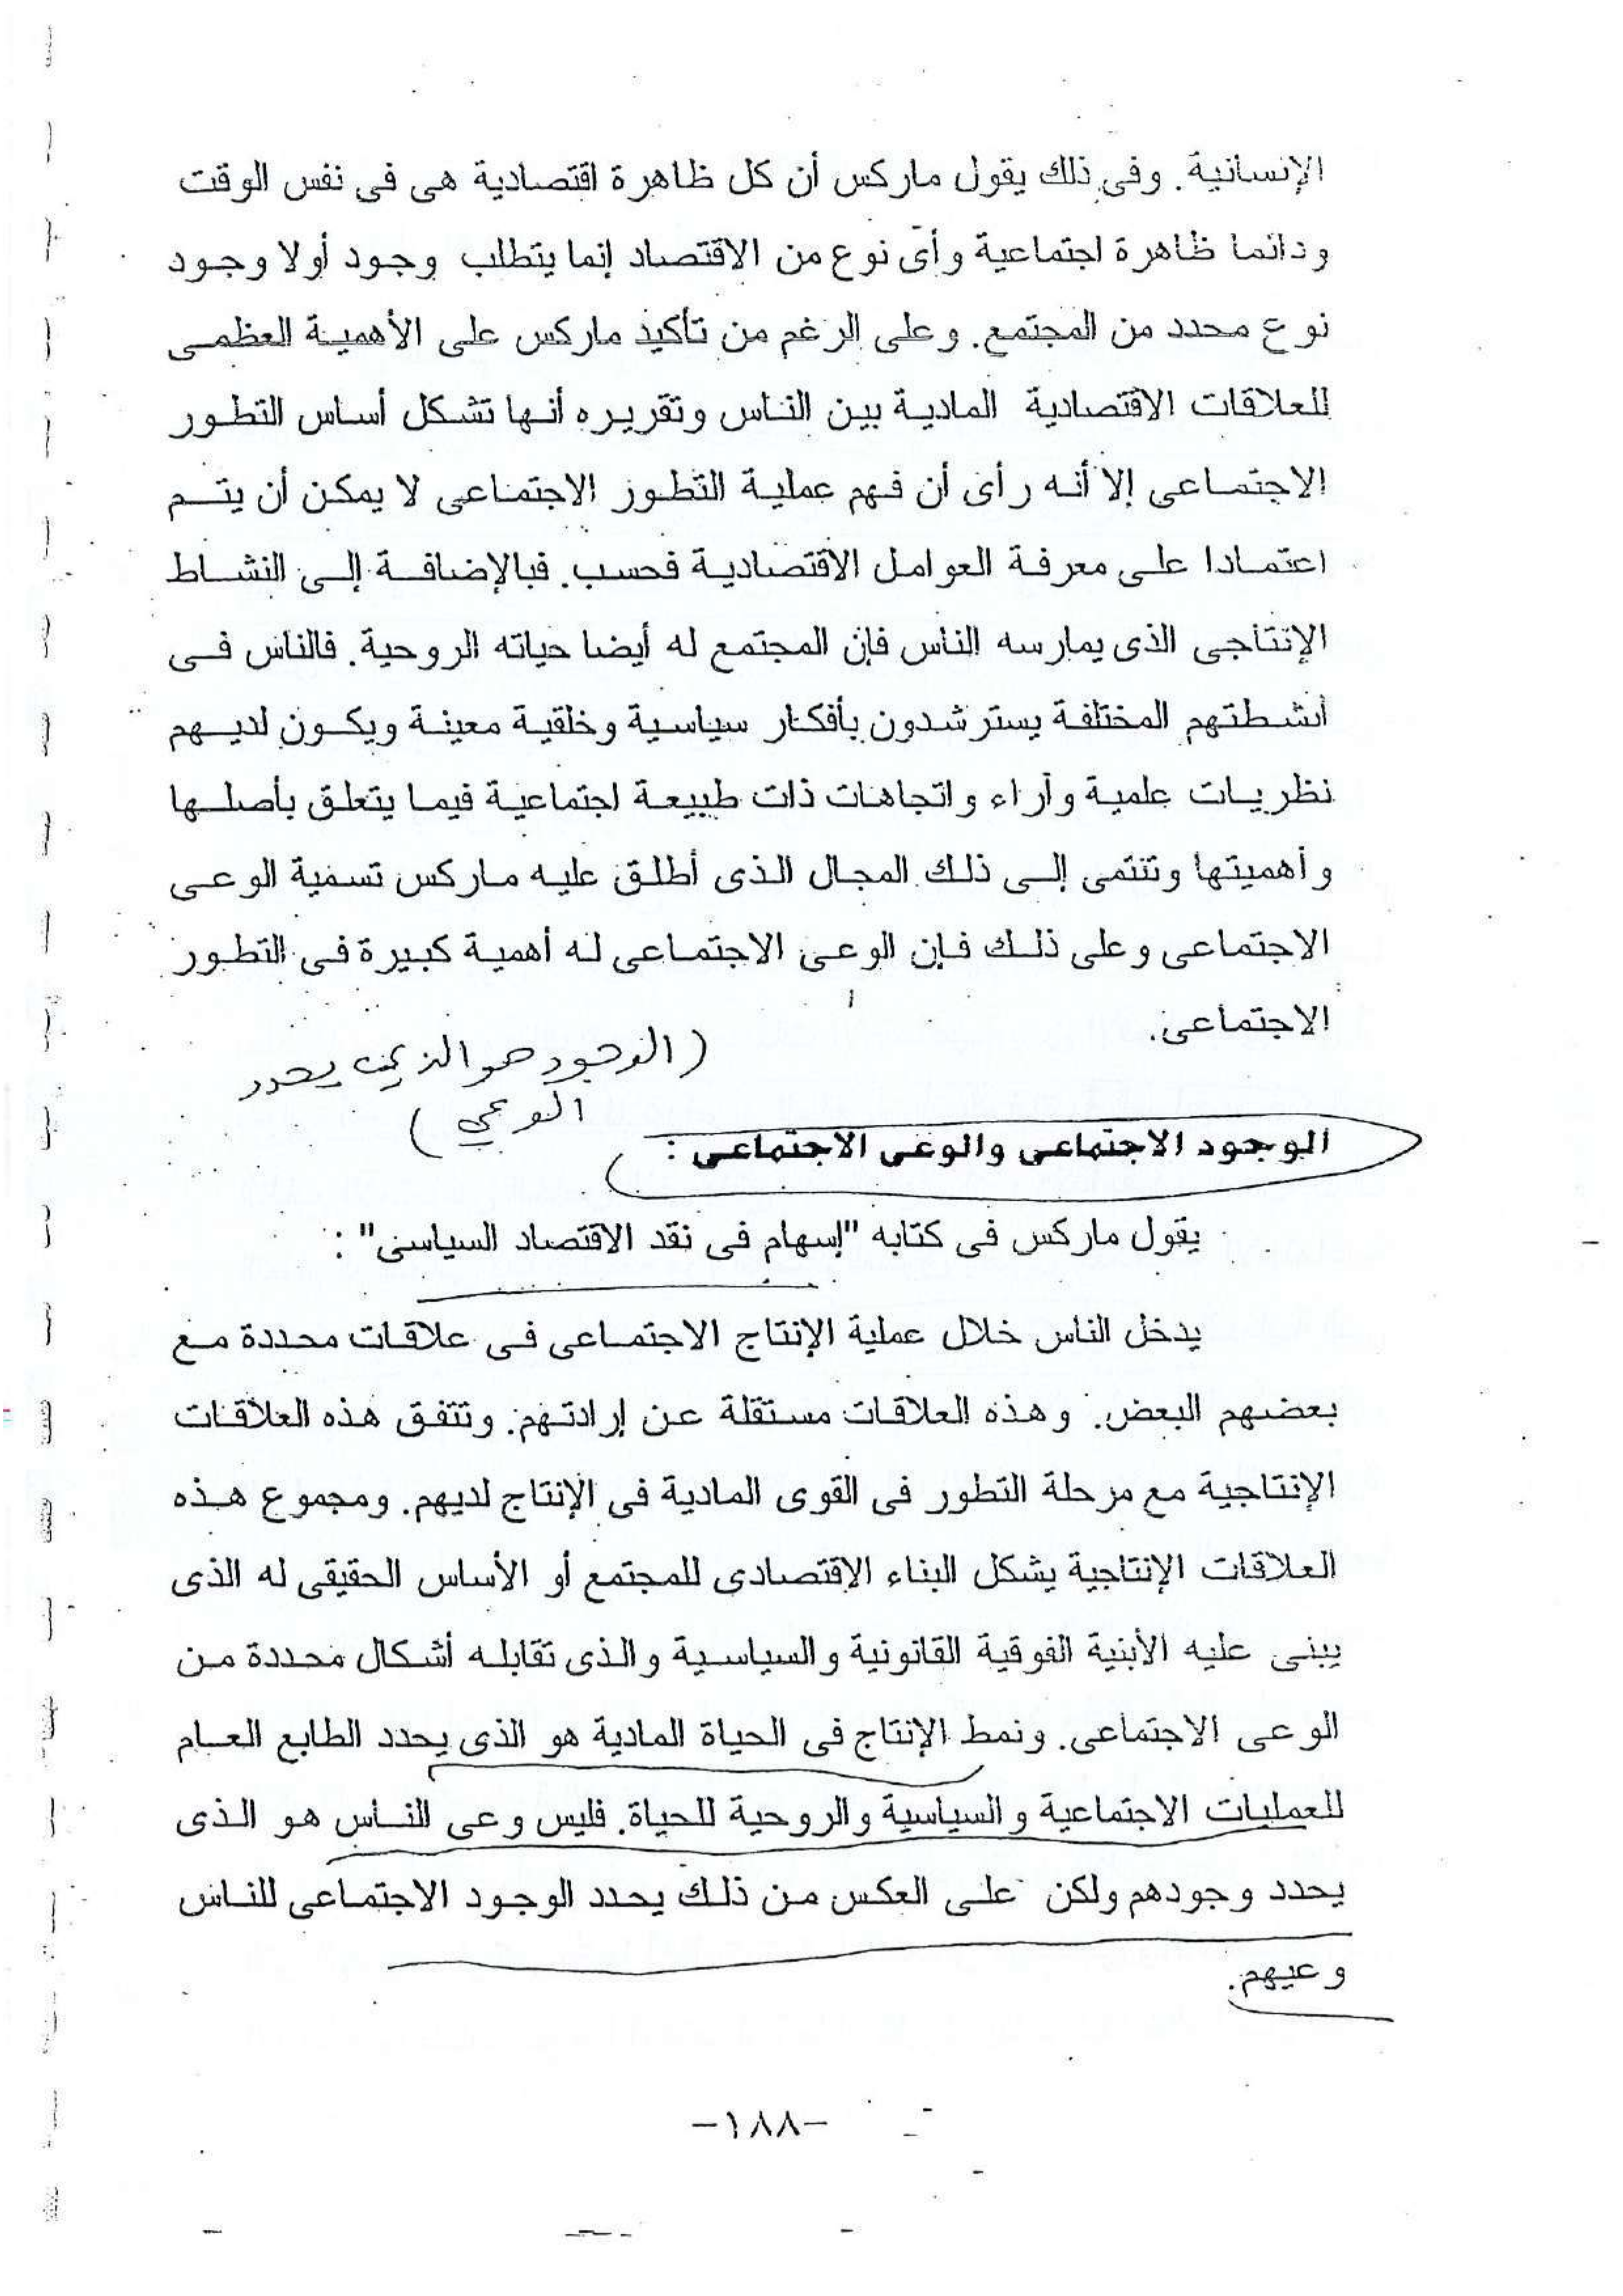 الإنسانية. وفى ذلك يقول ماركس أن كل ظاهرة اقتصادية هى فى نفس الوقت
ودائما ظاهرة اجتماعية وأى نوع من الاقتصاد إنما يتطلب وجود أولا وجود
نوع محدد من المجتمع. وعلى الرغم من تأكيد ماركس على الأهمية العظمى
للعلاقات الاقتصادية المادية بين الناس وتقريره أنها تشكل أساس التطور
الاجتماعى إلا أنه رأى أن فهم عملية التطور الاجتماعى لا يمكن أن يتم
اعتمادا على معرفة العوامل الاقتصادية فحسب. فبالإضافة إلى النشاط
الإنتاجى الذى يمارسه الناس فإن المجتمع له أيضا حياته الروحية. فالناس فى
أنشطتهم المختلفة يسترشدون بأفكار سياسية وخلقية معينة ويكون لديهم
نظريات علمية وآراء واتجاهات ذات طبيعة اجتماعية فيما يتعلق بأصلها
وأهميتها وتنتمى إلى ذلك المجال الذى أطلق عليه ماركس تسمية الوعى
الاجتماعى وعلى ذلك فإن الوعى الاجتماعى له أهمية كبيرة فى التطور
الاجتماعى.
(الوجود هو الذي يحدد
الوعي)
الوجود الاجتماعى والوعى الاجتماعى :
يقول ماركس فى كتابه "إسهام فى نقد الاقتصاد السياسى" :
يدخل الناس خلال عملية الإنتاج الاجتماعى فى علاقات محددة مع
بعضهم البعض. وهذه العلاقات مستقلة عن إرادتهم. وتتفق هذه العلاقات
الإنتاجية مع مرحلة التطور فى القوى المادية فى الإنتاج لديهم. ومجموع هذه
العلاقات الإنتاجية يشكل البناء الاقتصادى للمجتمع أو الأساس الحقيقى له الذى
يبنى عليه الأبنية الفوقية القانونية والسياسية والذى تقابله أشكال محددة من
الوعى الاجتماعى. ونمط الإنتاج فى الحياة المادية هو الذى يحدد الطابع العام
للعمليات الاجتماعية والسياسية والروحية للحياة. فليس وعى الناس هو الذى
يحدد وجودهم ولكن على العكس من ذلك يحدد الوجود الاجتماعى للناس
وعيهم.
-١٨٨-